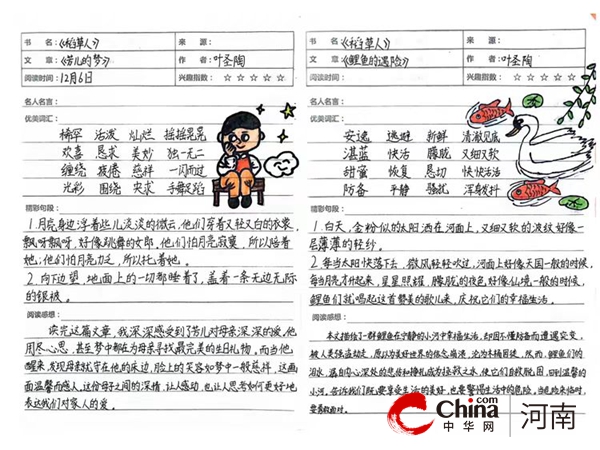 书 名：《稻草人》
来 源：
文 章：《芳儿的梦》
作 者：叶圣陶
阅读时间：12月6日
兴趣指数：☆ ☆ ☆ ☆ ☆
名人名言：
优美词汇：
活泼 灿烂 摇摇晃晃
欢喜 恳求 美妙 独一无二
缠绕 疲倦 慈祥 一闪而过
光彩 围绕 央求 手舞足蹈
精彩句段：
1.月亮身边浮着些儿淡淡的微云，他们穿着又轻又白的衣裳，
飘呀飘呀，好像跳舞的女郎，他们怕月亮寂寞，所以陪着
她；他们怕月亮力乏，所以托着她。
2.向下边望，地面上的一切都睡着了，盖着一条无边无际
的银被。
阅读感想：
读完这篇文章，我深深感受到了芳儿对母亲深深的爱，他
用尽心思，甚至梦中都在为母亲寻找最完美的生日礼物。而当他
醒来，发现母亲就守在他的床边，脸上的笑容如梦中一般慈祥，这画
面温馨而感人，这份母子之间的深情，让人感动，也让人思考如何更好地
表达我们对家人的爱。
书 名：《稻草人》
来 源：
文 章：《鲤鱼的遇险》
作 者：叶圣陶
阅读时间：
兴趣指数：☆ ☆ ☆ ☆ ☆
名人名言：
优美词汇：
安逸 逃避 新鲜 清澈见底
湛蓝 快活 朦胧 又细又软
甜蜜 恢复 恳切 快快活活
防备 平静 骚扰 浑身发抖
精彩句段：
1.白天，金粉似的太阳洒在河面上，又细又软的波纹好像一
层薄薄的轻纱。
2.每当太阳快落下去，微风轻轻吹过，河面上好像天国一般的时候，
每当月亮才升起来，星星照耀，朦胧的夜色好像仙境一般的时候，
鲤鱼们就唱起这首赞美的歌儿来，庆祝它们的幸福生活。
阅读感想：
本文描绘了一群鲤鱼在宁静的小河中幸福生活，却因不懂防备而遭遇突变，
China
中华网
河南